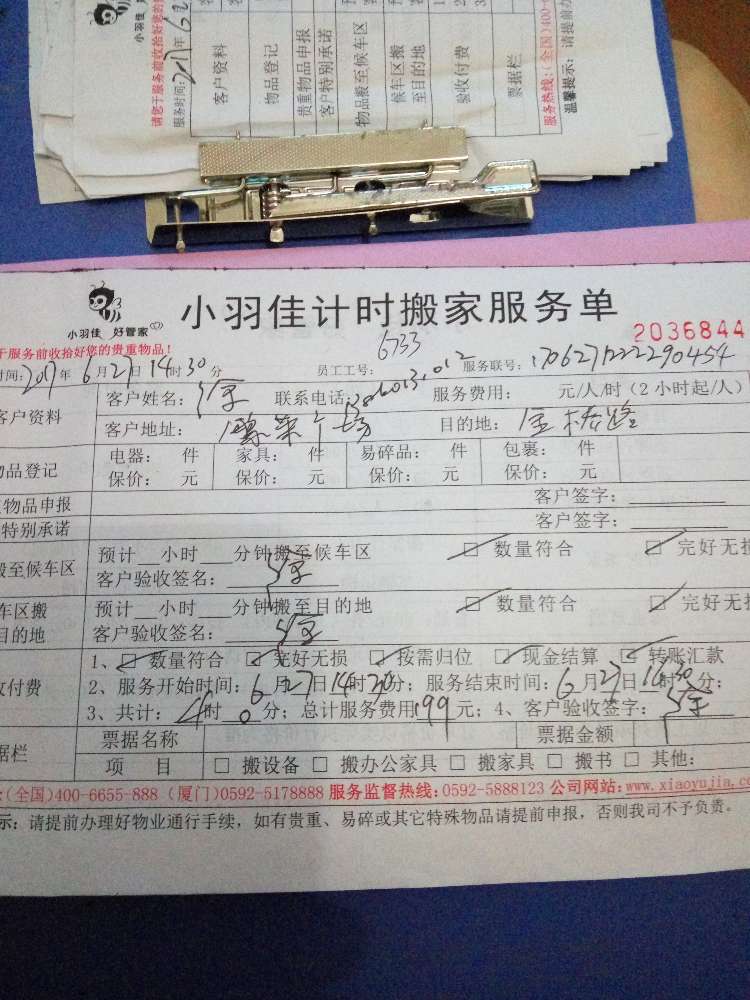 小羽佳
请您于服务前收拾好您的
服务时间:2017年6 2
客户资料
物品登记
贵重物品申报
客户特别承诺
物品搬至候车区
候车区搬
至目的地
验收付费
票据栏
服务热线:(全国)400-6
温馨提示:请提前办
小羽佳 好管家
小羽佳计时搬家服务单
2036844
于服务前收拾好您的贵重物品!
时间:2017年6月27日14时30分 员工工号:6733 服务联号:
客户资料 客户姓名: 联系电话: 服务费用: 元/人/时(2小时起/人)
客户地址: 目的地:金桥路
物品登记 电器: 件 家具: 件 易碎品: 件 包裹: 件
保价: 元 保价: 元 保价: 元 保价: 元
物品申报 客户签字:
特别承诺 客户签字:
搬至候车区 预计 小时 分钟搬至候车区 □ 数量符合 □ 完好无损
客户验收签名:
车区搬 预计 小时 分钟搬至目的地 □ 数量符合 □ 完好无
目的地 客户验收签名:
付费 1、□ 数量符合 □ 完好无损 □ 按需归位 □ 现金结算 □ 转账汇款
2、服务开始时间:6月27日14时30分;服务结束时间:6月27日 时30分;
3、共计:4时0分;总计服务费用199元;4、客户验收签字:
据栏 票据名称 票据金额
项 目 □ 搬设备 □ 搬办公家具 □ 搬家具 □ 搬书 □ 其他:
:(全国)400-6655-888 (厦门)0592-5178888 服务监督热线:0592-5888123 公司网站:www.xiaoyujia.co
示:请提前办理好物业通行手续,如有贵重、易碎或其它特殊物品请提前申报,否则我司不予负责。